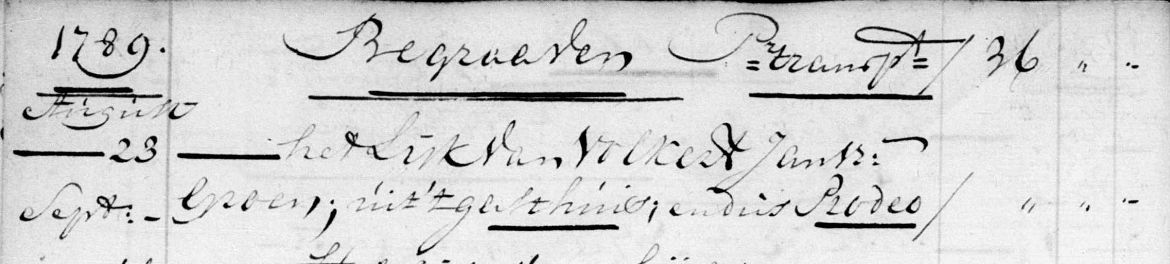 1789. Begraaven Pr. transpt / 36 " "
August
23 het Lijk van Volkert Jansz:
Sept: Groen; uit 't gasthuis; en dus Prodeo / " " "